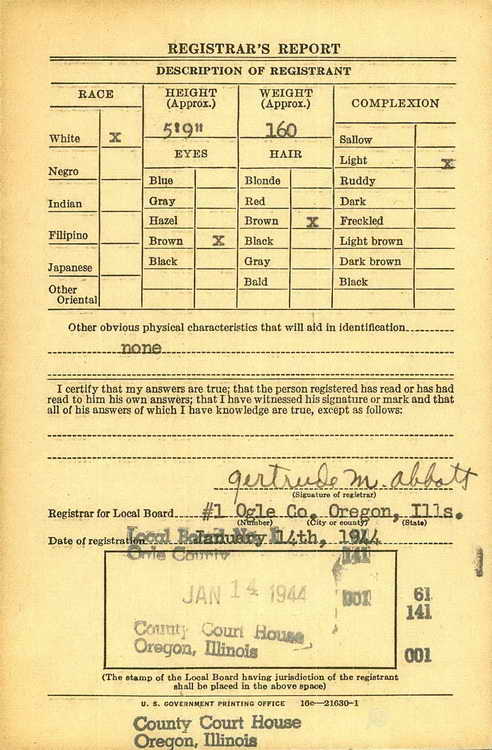 REGISTRAR'S REPORT
DESCRIPTION OF REGISTRANT
RACE
HEIGHT (Approx.)
WEIGHT (Approx.)
COMPLEXION
5'9"
160
White X
Negro
Indian
Filipino
Japanese
Other Oriental
EYES
Blue
Gray
Hazel
Brown X
Black
HAIR
Blonde
Red
Brown X
Black
Gray
Bald
Sallow
Light X
Ruddy
Dark
Freckled
Light brown
Dark brown
Black
Other obvious physical characteristics that will aid in identification
none
I certify that my answers are true; that the person registered has read or has had
read to him his own answers; that I have witnessed his signature or mark and that
all of his answers of which I have knowledge are true, except as follows:
Gertrude M. Abbott
(Signature of registrar)
Registrar for Local Board #1 Ogle Co. Oregon, Ills.
(Number) (City or county) (State)
Date of registration January 14th, 1944
Local Board No. 1
Ogle County
141
JAN 14 1944
001
61
141
County Court House
Oregon, Illinois
001
(The stamp of the Local Board having jurisdiction of the registrant
shall be placed in the above space)
U. S. GOVERNMENT PRINTING OFFICE 16c—21630-1
County Court House
Oregon, Illinois